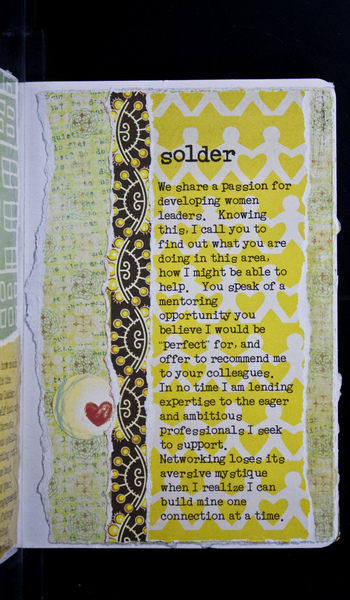 solder
We share a passion for
developing women
leaders. Knowing
this, I call you to
find out what you are
doing in this area,
how I might be able to
help. You speak of a
mentoring
opportunity you
believe I would be
"perfect" for, and
offer to recommend me
to your colleagues.
In no time I am lending
expertise to the eager
and ambitious
professionals I seek
to support.
Networking loses its
aversive mystique
when I realize I can
build mine one
connection at a time.